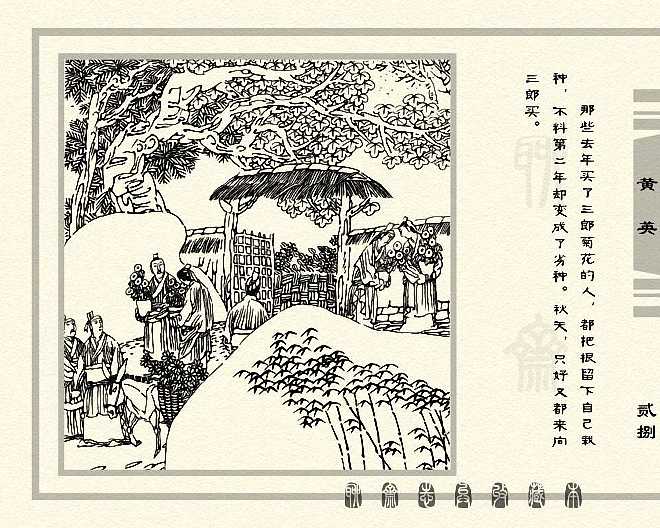 那些去年买了三郎菊花的人，都把根留下自己栽
种，不料第二年却变成了劣种。秋天，只好又都来向
三郎买。
黄英
贰捌
聊斋志异收藏本